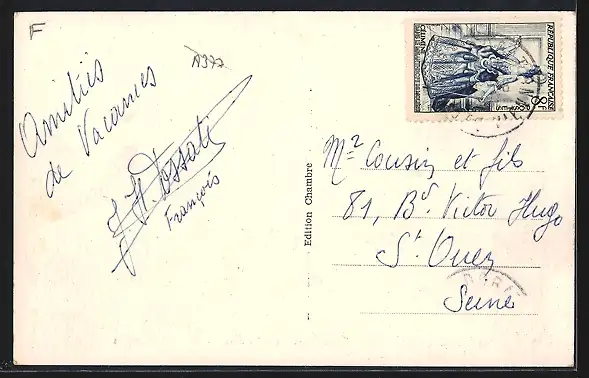 F
A377
Amitiés
de Vacances
François
Edition Chambre
REPUBLIQUE FRANÇAISE
8F
POSTES
CELIMENE
Mr Cousin et fils
81, Bd Victor Hugo
St Ouen
Seine